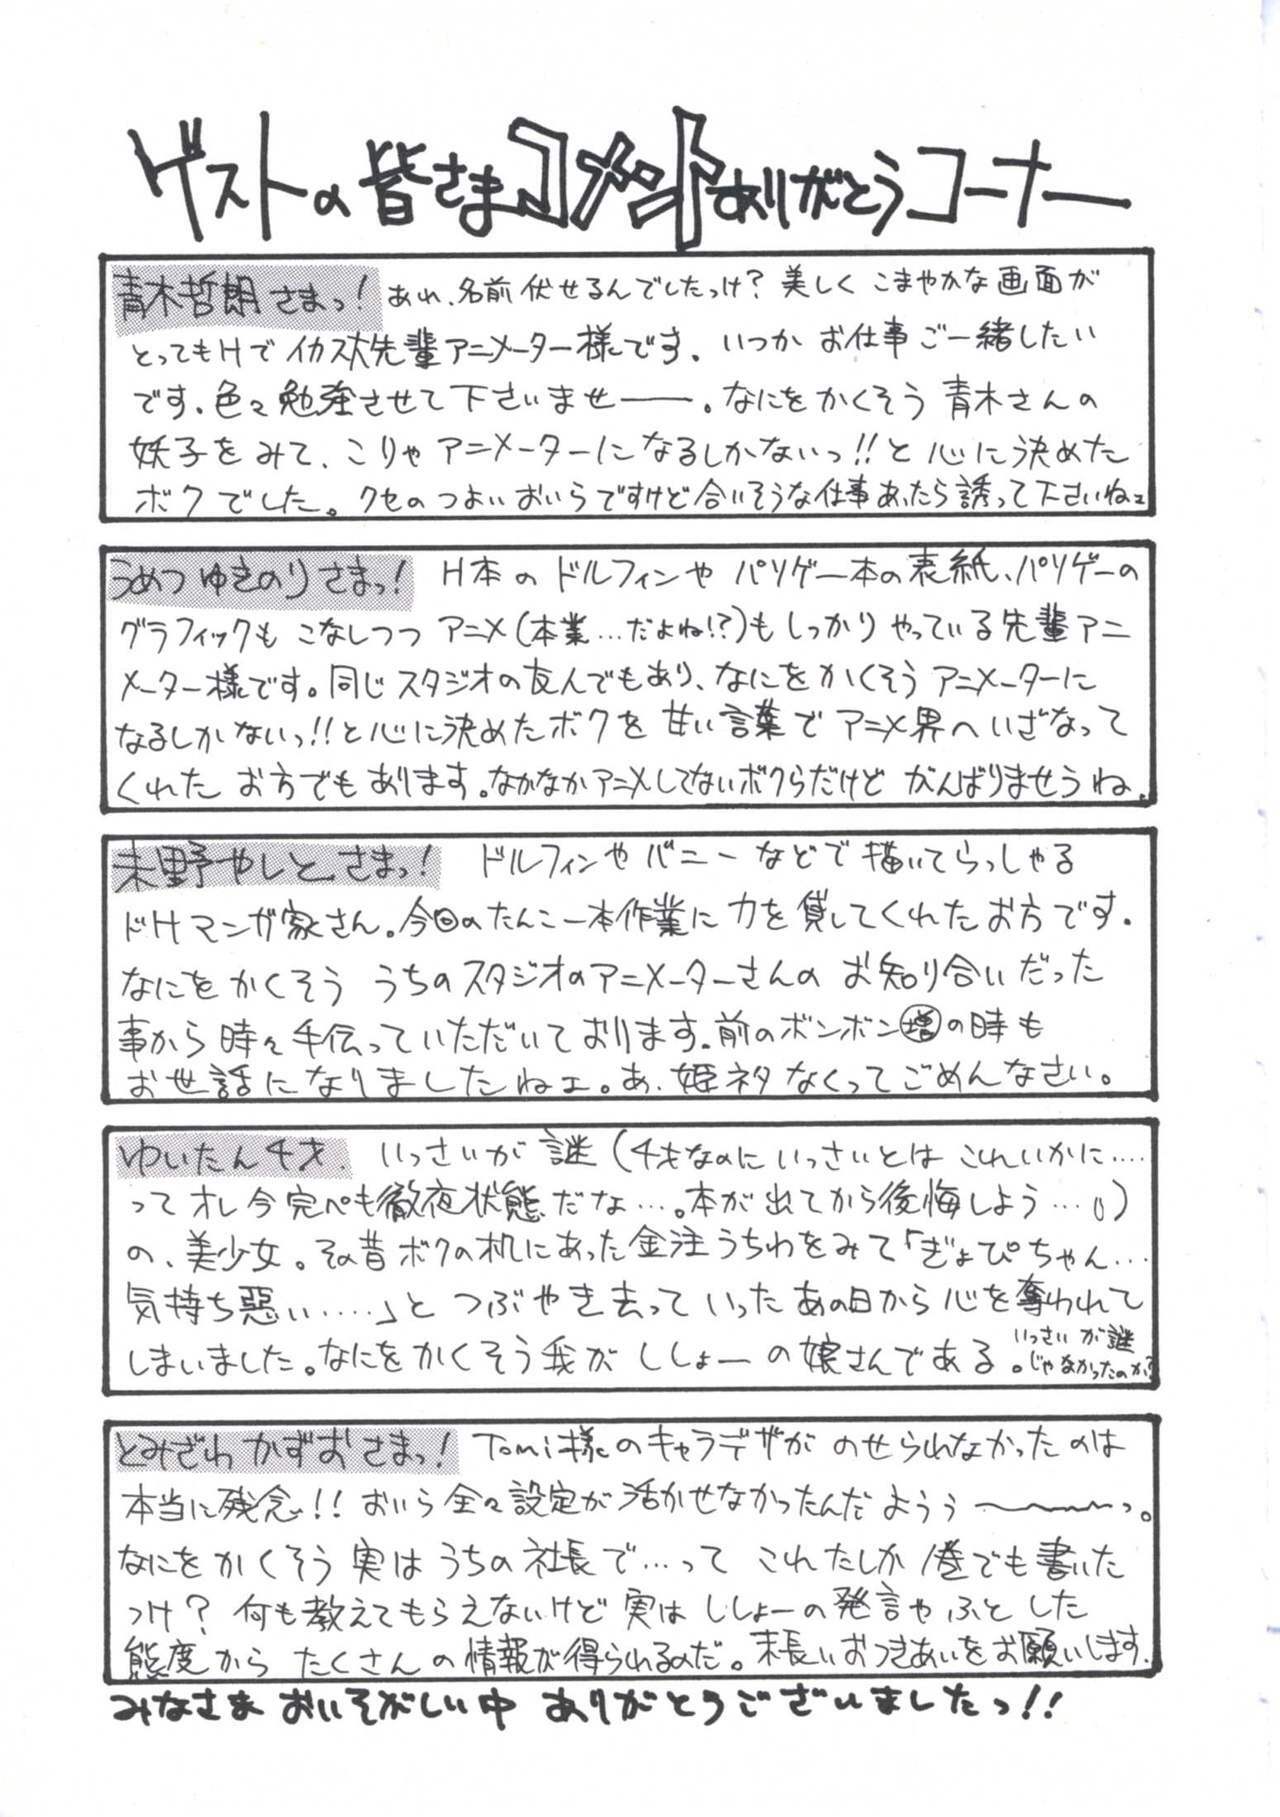 ゲストの皆さまコメントありがとうコーナー
青木哲朗さまっ! あれ、名前伏せるんでしたっけ?美しくこまやかな画面が
とってもHでイカス大先輩アニメーター様です。いつかお仕事ご一緒したい
です。色々勉強させて下さいませ――。なにをかくそう青木さんの
妖子をみて、こりゃアニメーターになるしかないっ!!と心に決めた
ボクでした。クセのつよいおいらですけど合いそうな仕事あったら誘って下さいねェ
うめつゆきのりさまっ! H本のドルフィンやパソゲー本の表紙、パソゲーの
グラフィックもこなしつつアニメ(本業…だよね!?)もしっかりやっている先輩アニ
メーター様です。同じスタジオの友人でもあり、なにをかくそうアニメーターに
なるしかないっ!!と心に決めたボクを甘い言葉でアニメ界へいざなって
くれたお方でもあります。なかなかアニメしてないボクらだけどがんばりませうね。
未野やしとさまっ! ドルフィンやバニーなどで描いてらっしゃる
ドHマンガ家さん。今回のたんこー本作業に力を貸してくれたお方です。
なにをかくそううちのスタジオのアニメーターさんのお知り合いだった
事から時々手伝っていただいております。前のボンボン増の時も
お世話になりましたねェ。あ、姫ネタなくってごめんなさい。
ゆいたんチオ。いっさいが謎(チオなのにいっさいとはこれいかに‥‥
ってオレ今完ペも徹夜状態だな…。本が出てから後悔しよう…)
の、美少女。その昔ボクの机にあった金注うちわをみて「ぎょぴちゃん…
気持ち悪い……」とつぶやき去っていったあの日から心を奪われて
しまいました。なにをかくそう我がししょーの娘さんである。
いっさいが謎
じゃなかったのか?
とみざわかずおさまっ! Tomi様のキャラデザがのせられなかったのは
本当に残念!!おいら全々設定が活かせなかったんだようぅ〜〜っ。
なにをかくそう実はうちの社長で…ってこれたしか1巻でも書いた
っけ?何も教えてもらえないけど実はししょーの発言やふとした
態度からたくさんの情報が得られるのだ。末長いおつきあいをお願いします。
みなさまおいそがしい中ありがとうございましたっ!!